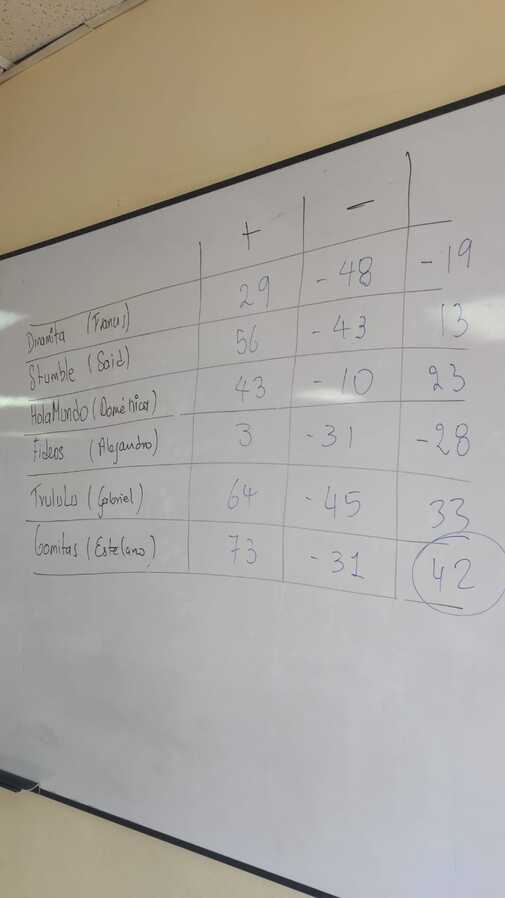 + -
Dinamita (Francis) 29 - 48 - 19
Stumble (Said) 56 - 43 13
HolaMundo (Doménica) 43 - 10 23
Fideos (Alejandro) 3 - 31 - 28
Trululu (Gabriel) 64 - 45 33
Gomitas (Estefano) 73 - 31 42